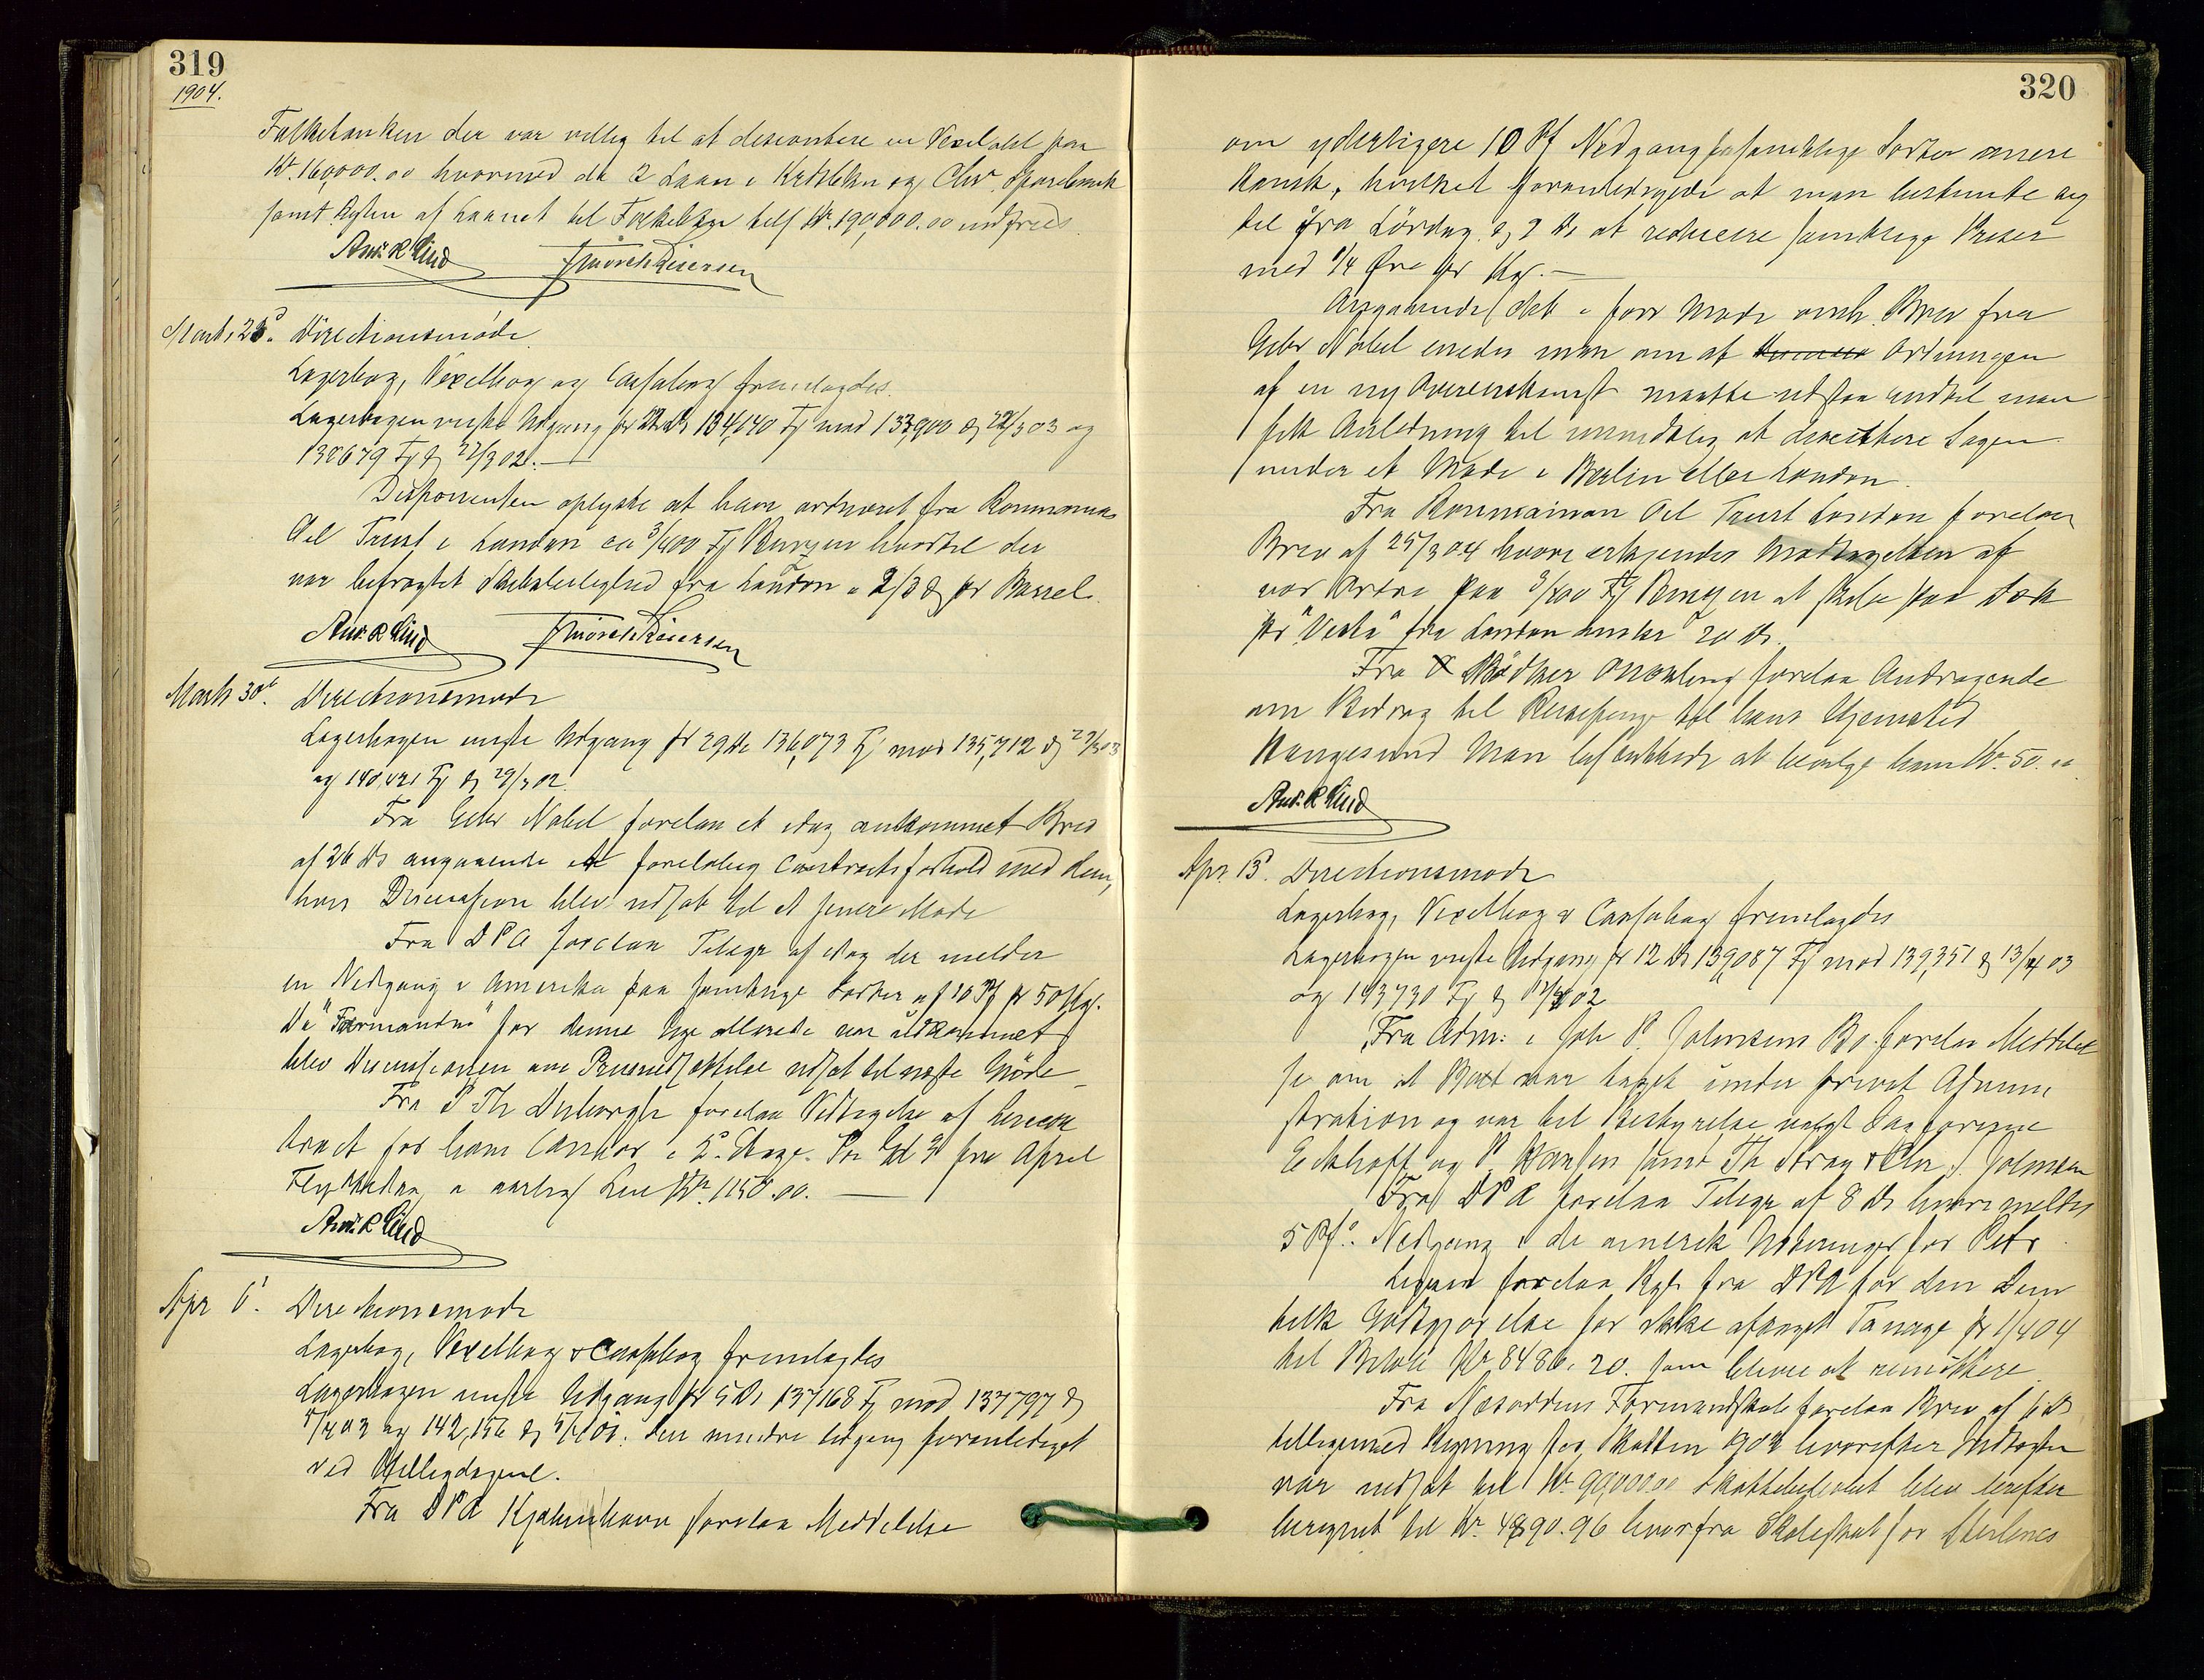 319
1904.
Folkebanken der var villig til at descontere en Vexelobl paa
Kr. 160,000.00 hvormed de 2 Laan i Kr Sparebank
samt Resten af Laanet til Folkebkn tils Kr. 190,000.00 indfries
Ant. R Lind
Marts 23d. Directionsmøde
Lagerbog, Vexelbog og Cassabog fremlagdes.
Lagerbogen viste Udgang pr 22 ds 134,140 Fj mod 133,900 d 22/3 03 og
138679 Fj d 22/3 02. —
Disponenten oplyste at have ordneret fra Roumanias
Oil Trust i London ca 3/400 Fj Benzin hvortil der
var befragtet Skibsleilighed fra London a 2/3 d pr Barrel.
Ant. R Lind
Marts 30t. Directionsmøde
Lagerbogen viste Udgang pr 29 ds 136,073 Fj mod 135,712 d 29/3 03
og 140,421 Fj d 29/3 02.
Fra Gebr Nobel forelaa et idag ankommet Brev
af 26 ds angaaende et foreløbig Contractsforhold med dem,
hvis Discussion blev udsat til et senere Møde
Fra DPA forelaa Telegr af idag der melder
en Nedgang i Amerika paa samtlige Sorter af 10 Pf pr 50 Kg.
Da "Formanden" for denne Uge allerede var udkommet
blev Discussionen om Prisnedsættelse udsat til næste Møde —
Fra P Th Duborgh forelaa Vedtagelse af
tract for ham Contor i 2. Etage. Po Gd 9 fra April
Flyttedag a aarlig Leie Kr. 1150.00. —
Ant. R Lind
Apr 6t. Directionsmøde
Lagerbog, Vexelbog & Cassabog fremlagdes
Lagerbogen viste Udgang pr 5 ds 137168 Fj mod 137797 d
5/4 03 og 142,156 d 5/4 02. Den mindre Udgang foranlediget
ved Helligdagene.
Fra DPA Kjøbenhavn forelaa Meddelelse
320
om yderligere 10 Pf Nedgang paa samtlige Sorter amerikansk, hvilket foranledigede at man bestemte sig
til fra Lördag d 9 ds at reducere samtlige Priser
med 1/4 Øre pr Kg. —
Angaaende det i forr Møde omh. Brev fra
Gebr Nobel enedes man om at Ordningen
af en ny Overenskomst maatte udstaa indtil man
fik Anledning til mundtlig at discuttere Sagen
under et Møde i Berlin eller London.
Fra Roumainian Oil Trust London forelaa
Brev af 25/3 04 hvori erkjendes Modtagelsen af
vor Ordre paa 3/400 Fj Benzin at skibe paa Dæk
pr "Vesta" fra London 20 ds.
Fra Bødker forelaa Andragende
om Bidrag til Reisepenge til hans Hjemsted
Haugesund Man besluttede at bevilge ham Kr. 50.00
Ant. R Lind
Apr. 13. Directionsmøde
Lagerbog, Vexelbog & Cassabog fremlagdes
Lagerbogen viste Udgang pr 12 ds 139,087 Fj mod 139,351 d 13/4 03
og 143730 Fj d 12/4 02
Fra Adm: i Joh P. Johnsens Bo forelaa Meddelelse om at Boet var taget under privat Administration og var til Bestyrelse valgt Sagførerne
Eckhoff og P Hansen samt Th
Fra DPA forelaa Telegr af 8 ds hvori meldes
5 Pf. Nedgang i de amerik Noteringer for Petr
Ligesaa forelaa Rgl fra DPA for den
Godtgjørelse for ikke aftaget Tonage pr 1/4 04
til Beløb Kr. 8486.20. som blev at remittere.
Fra Næsoddens Formandskab forelaa Brev af 6 ds
tilligemed Regning for Skatten 1904 hvorefter Indtægten
var nedsat til Kr. 99,000.00 Skattebeløbet blev herefter
beregnet til Kr. 4890.96 hvorfra Skoleskat for